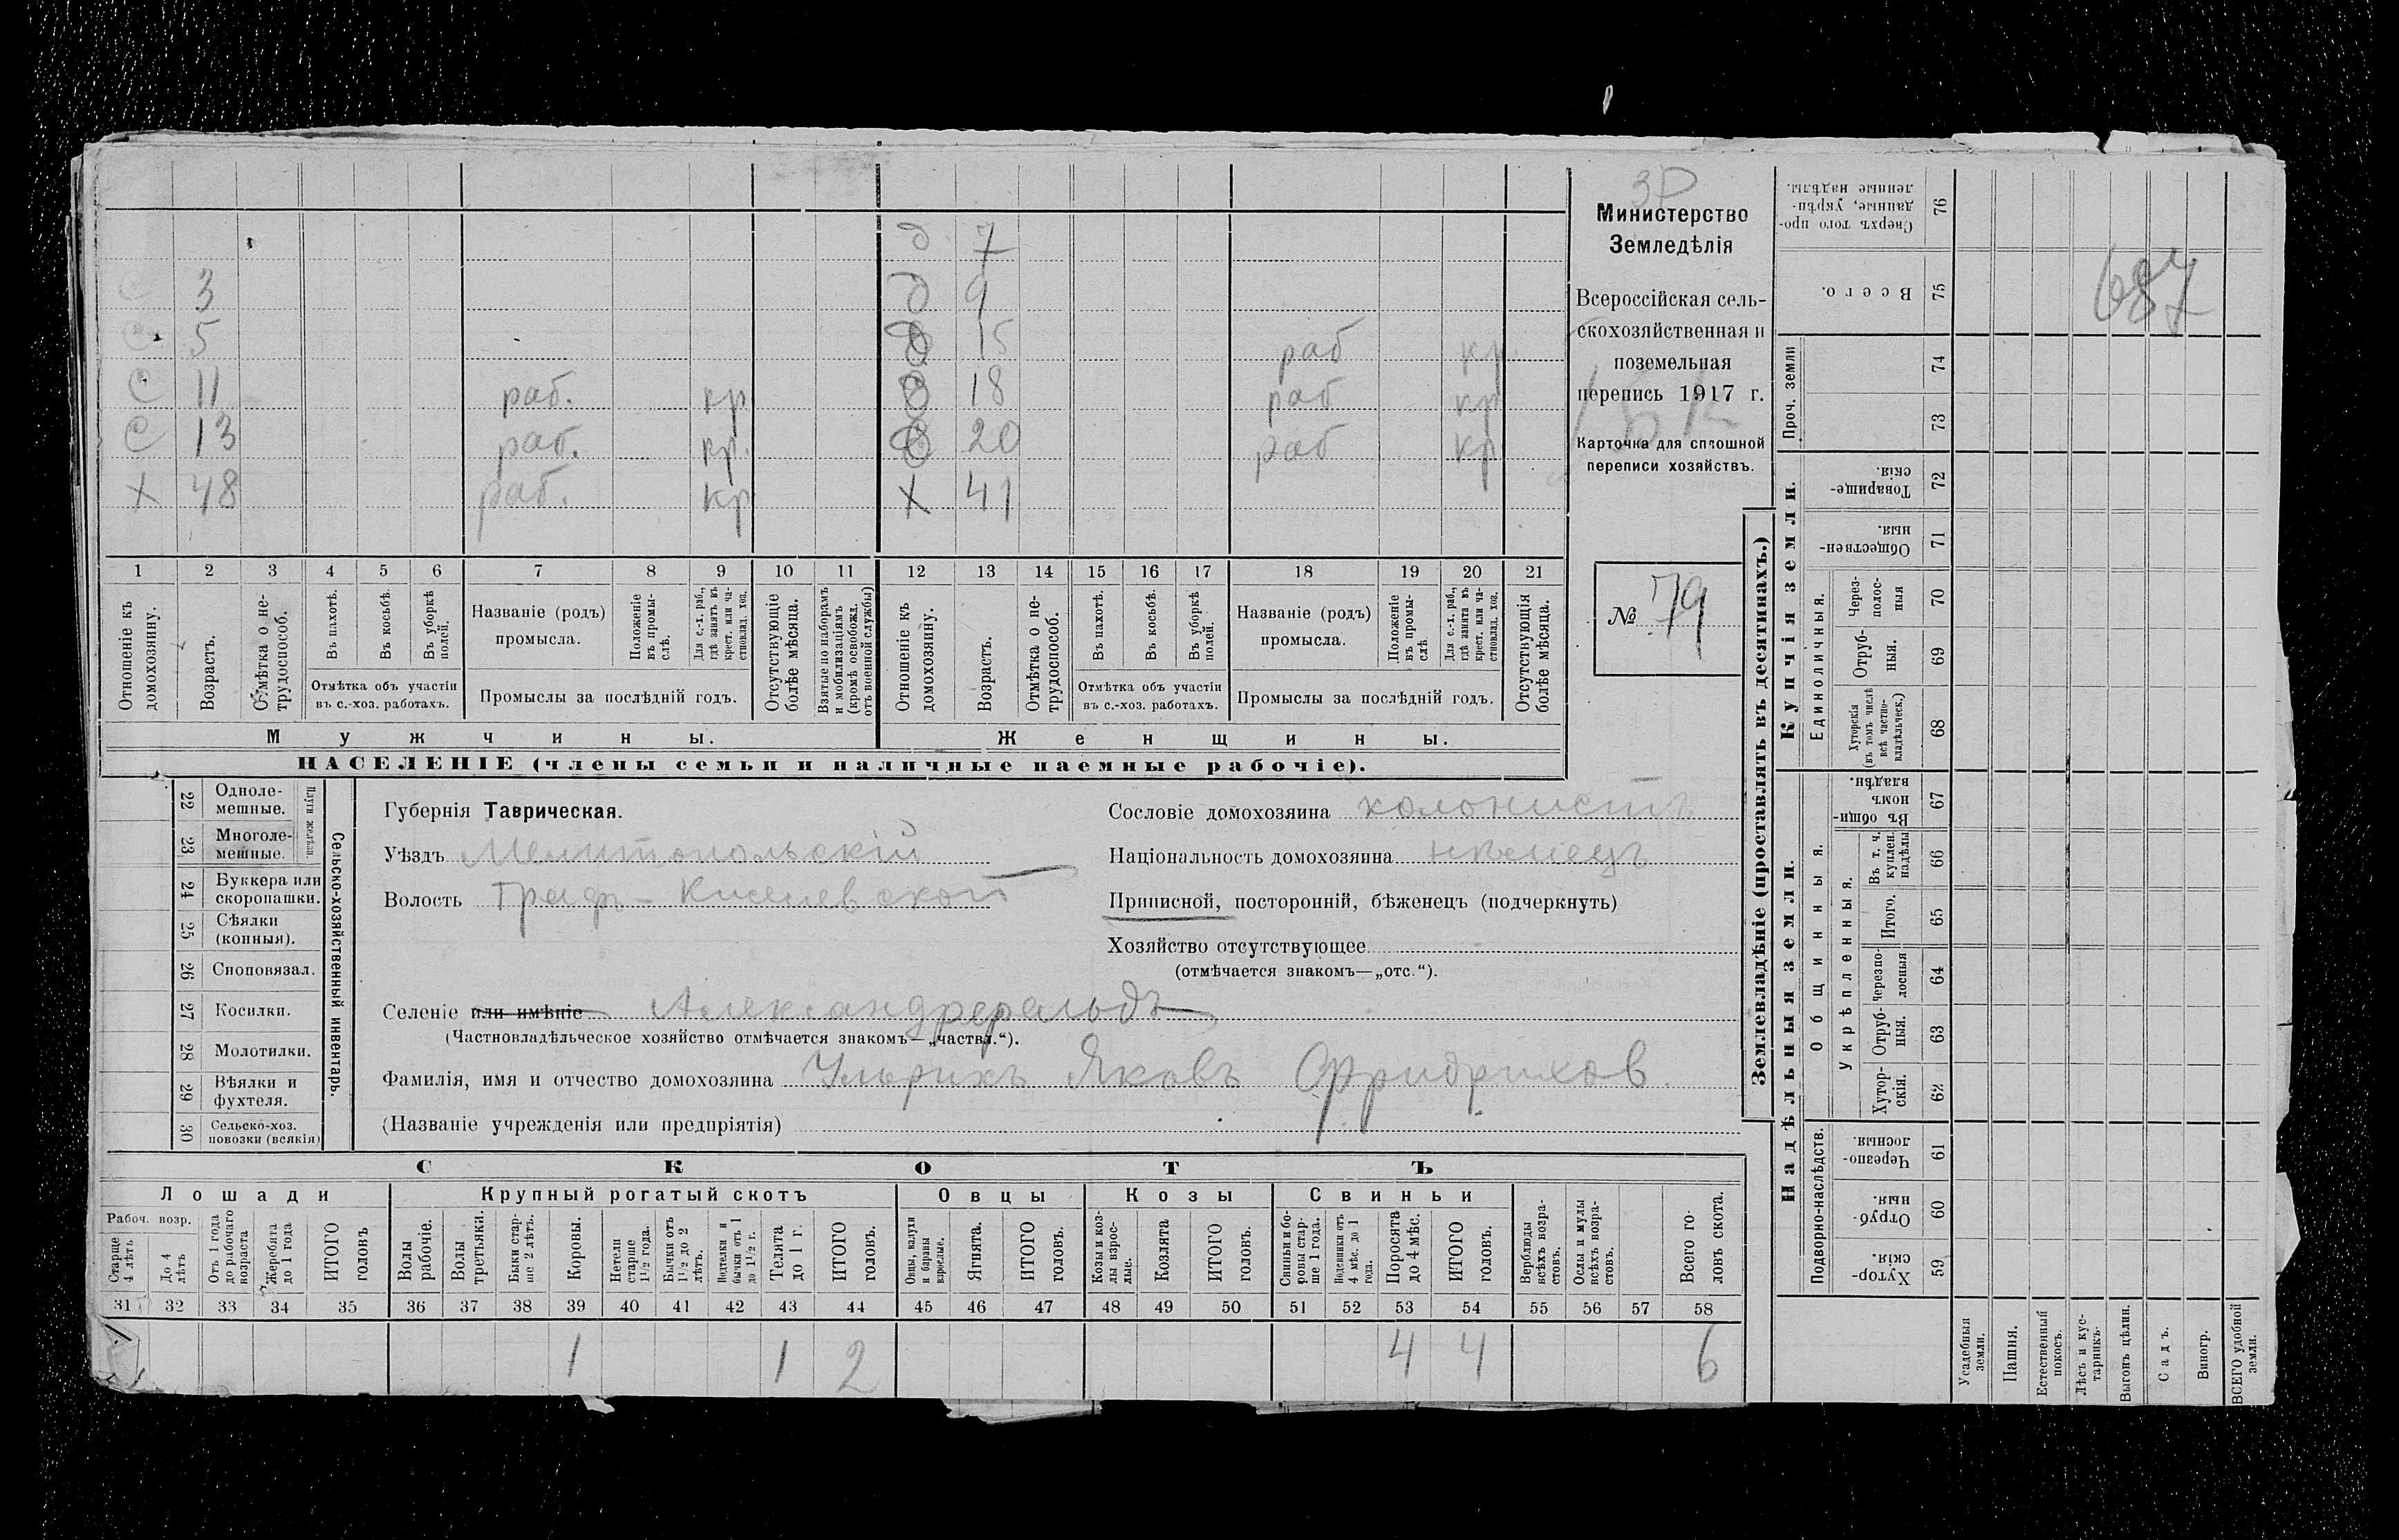 д 7
с 3 д 9
с 5 д 15 раб кр.
с 11 раб. кр д 18 раб кр
с 13 раб. кр. д 20 раб кр
х 48 раб. кр х 41
1 2 3 4 5 6 7 8 9 10 11 12 13 14 15 16 17 18 19 20 21
Отношеніе къ домохозяину.
Возрастъ.
Отмѣтка о нетрудоспособ.
Въ пахотѣ.
Въ косьбѣ.
Въ уборкѣ полей.
Отмѣтка объ участіи въ с.-хоз. работахъ.
Названіе (родъ) промысла.
Положеніе въ промыслѣ.
Для с.-х. раб., гдѣ занятъ въ крест. или частновлад. хоз.
Промыслы за послѣдній годъ.
Отсутствующіе болѣе мѣсяца.
Взятые по наборамъ и мобилизаціямъ (кромѣ освобожд. отъ военной службы)
Отношеніе къ домохозяину.
Возрастъ.
Отмѣтка о нетрудоспособ.
Въ пахотѣ.
Въ косьбѣ.
Въ уборкѣ полей.
Отмѣтка объ участіи въ с.-хоз. работахъ.
Названіе (родъ) промысла.
Положеніе въ промыслѣ.
Для с.-х. раб., гдѣ занята въ крест. или частновлад. хоз.
Промыслы за послѣдній годъ.
Отсутствующія болѣе мѣсяца.
Мужчины.
Женщины.
НАСЕЛЕНІЕ (члены семьи и наличные наемные рабочіе).
Министерство
Земледѣлія
Всероссійская сель-
скохозяйственная и
поземельная
перепись 1917 г.
Карточка для сплошной
переписи хозяйствъ.
№ 79
Сельско-хозяйственный инвентарь.
Плуги желѣзн.
22 Одноле-
мешные.
23 Многоле-
мешные.
24 Буккера или
скоропашки.
25 Сѣялки
(конныя).
26 Сноповязал.
27 Косилки.
28 Молотилки.
29 Вѣялки и
фухтеля.
30 Сельско-хоз.
повозки (всякія)
Губернія Таврическая.
Уѣздъ Мелитопольскій
Волость Граф-Киселевской
Сословіе домохозяина колонистъ
Національность домохозяина нѣмецъ
Приписной, посторонній, бѣженецъ (подчеркнуть)
Хозяйство отсутствующее
(отмѣчается знакомъ—„отс.“).
Селеніе или имѣніе Александрфельдъ
(Частновладѣльческое хозяйство отмѣчается знакомъ—„частвл.“).
Фамилія, имя и отчество домохозяина Ульрихъ Яковъ Фридрихов.
(Названіе учрежденія или предпріятія)
СКОТЪ
Лошади
Рабоч. возр.
Старше 4 лѣтъ
До 4 лѣтъ
Отъ 1 года до рабочаго возраста
Жеребята до 1 года
ИТОГО головъ
Крупный рогатый скотъ
Волы рабочіе.
Волы третьяки.
Быки старше 2 лѣтъ.
Коровы.
Нетели старше 1½ года.
Бычки отъ 1½ до 2 лѣтъ.
Подтелки и бычки отъ 1 до 1½ г.
Телята до 1 г.
ИТОГО головъ.
Овцы
Овцы, валухи и бараны взрослые.
Ягнята.
ИТОГО головъ.
Козы
Козы и козлы взрослые.
Козлята
ИТОГО головъ.
Свиньи
Свиньи и боровы старше 1 года.
Подсвинки отъ 4 мѣс. до 1 года.
Поросята до 4 мѣс.
ИТОГО головъ.
Верблюды всѣхъ возрастовъ.
Ослы и мулы всѣхъ возрастовъ.
Всего головъ скота.
31 32 33 34 35 36 37 38 39 40 41 42 43 44 45 46 47 48 49 50 51 52 53 54 55 56 57 58
1 1 2 4 4 6
Землевладѣніе (проставлять въ десятинахъ.)
Купчія земли.
Надѣльныя земли.
Сверхъ того проданные, укрѣпленные надѣлы. 76
Всего. 75
687
Проч. земли
74
73
Товарищескія. 72
Общественныя. 71
Единоличныя.
Черезполосныя 70
Отрубныя. 69
Хуторскія (въ томъ числѣ всѣ частновладѣльческ.) 68
Общинныя.
Въ общинномъ владѣн. 67
Укрѣпленныя.
Въ т. ч. куплен. надѣлы 66
Итого. 65
Черезполосныя 64
Отрубныя. 63
Хуторскія. 62
Подворно-наслѣдств.
Черезполосныя. 61
Отрубныя. 60
Хуторскія. 59
Усадебныя земли.
Пашня.
Естественный покосъ.
Лѣсъ и кустарникъ.
Выгонъ цѣлин.
Садъ.
Виногр.
ВСЕГО удобной земли.